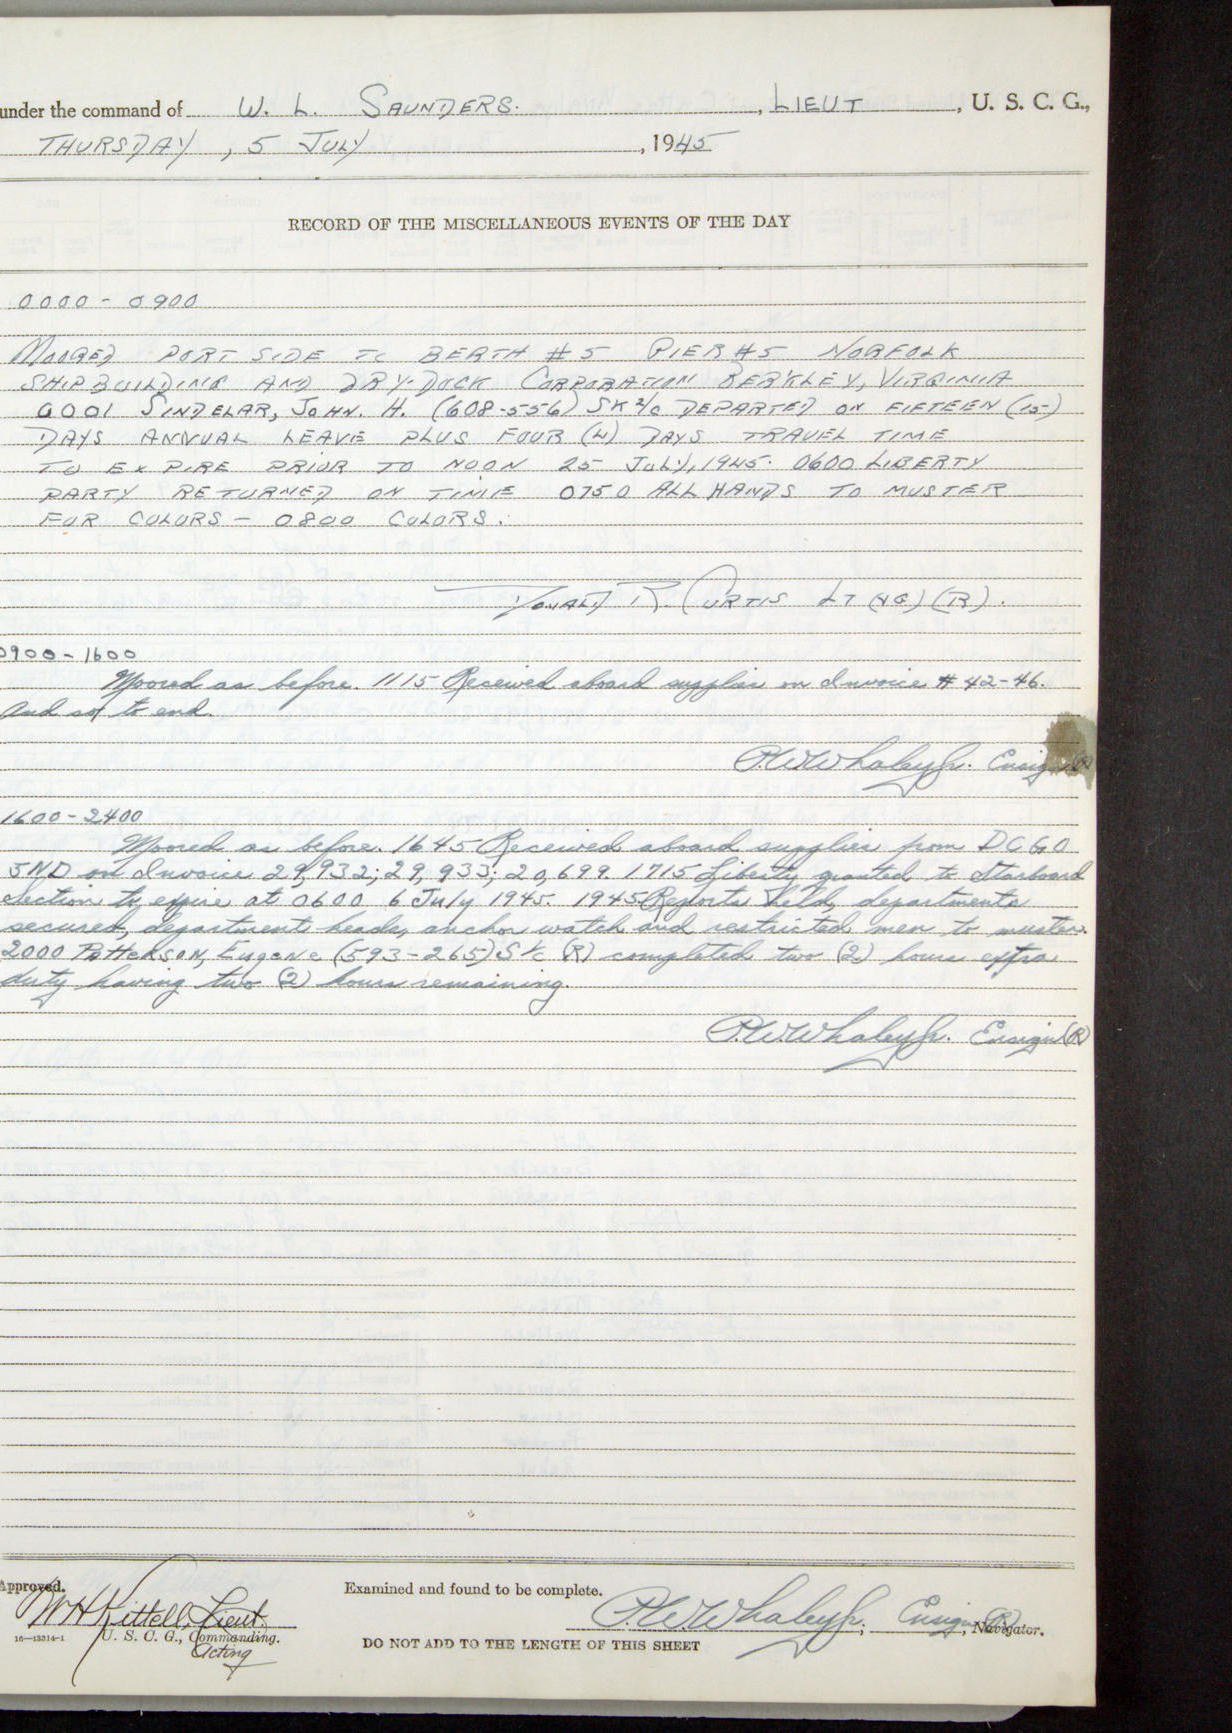 under the command of W. L. SAUNDERS. , LIEUT , U. S. C. G.,
THURSDAY , 5 JULY , 1945
RECORD OF THE MISCELLANEOUS EVENTS OF THE DAY
0000 - 0900
MOORED PORT SIDE TO BERTH #5 PIER #5 NORFOLK
SHIPBUILDING AND DRY-DOCK CORPORATION BERKLEY, VIRGINIA
0001 SINDELAR, JOHN. H. (608-556) SK 2/c DEPARTED ON FIFTEEN (15)
DAYS ANNUAL LEAVE PLUS FOUR (4) DAYS TRAVEL TIME
TO EXPIRE PRIOR TO NOON 25 JULY, 1945. 0600 LIBERTY
PARTY RETURNED ON TIME 0750 ALL HANDS TO MUSTER
FOR COLORS - 0800 COLORS.
DONALD R. CURTIS LT (JG) (R).
0900 - 1600
Moored as before. 1115 Received aboard supplies on Invoice # 42-46.
And so to end.
P.W. Whaley Jr. Ensign (R)
1600 - 2400
Moored as before. 1645 Received aboard supplies from DCGO
5ND on Invoice 29,932; 29,933; 20,699. 1715 Liberty granted to Starboard
Section to expire at 0600 6 July 1945. 1945 Reports held, departments
secured, department heads, anchor watch and restricted men to muster.
2000 Patterson, Eugene (593-265) S 1/c (R) completed two (2) hours extra
duty having two (2) hours remaining.
P.W. Whaley Jr. Ensign (R)
Approved.
W H Kittell, Lieut.
16—13314-1 U. S. C. G., Commanding.
Acting
Examined and found to be complete.
P.W. Whaley Jr. , Ensign (R) , Navigator.
DO NOT ADD TO THE LENGTH OF THIS SHEET